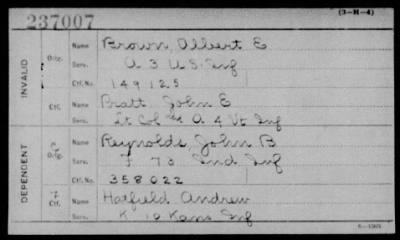 237007
(3-H-4)
INVALID
Orig.
Name Brown, Albert E
Serv. A 3 U.S. Inf
Ctf. No. 149125
Ctf.
Name Pratt, John E
Serv. Lt Col A 4 Vt Inf
DEPENDENT
Orig.
Name Reynolds, John B
Serv. F 73 Ind Inf
Ctf. No. 358022
Ctf.
Name Hatfield Andrew
Serv. K 10 Kans Inf